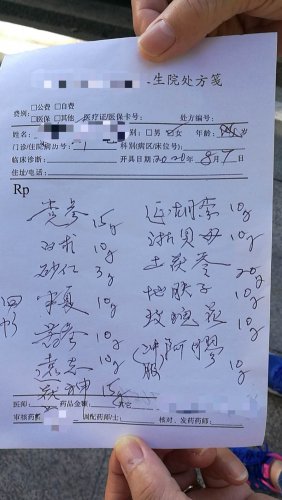 生院处方笺
费别: □公费 □自费
□医保 □其他 医疗证/医保卡号: 处方编号:
姓名: 别: □男 女 年龄: 岁
门诊/住院病历号: 科别(病区/床位号):
临床诊断: 开具日期2020年8月7日
住址/电话:
Rp
党参 15g 延胡索 10g
白术 10g 浙贝母 10g
砂仁 3g 土茯苓 20g
半夏 10g 地肤子 10g
10g 玫瑰花 10g
远志 10g (冲服)阿胶 10g
茯神 15g
四付
医师: 药品金额: 其它
审核药师: 调配药师/士: 核对、发药药师: